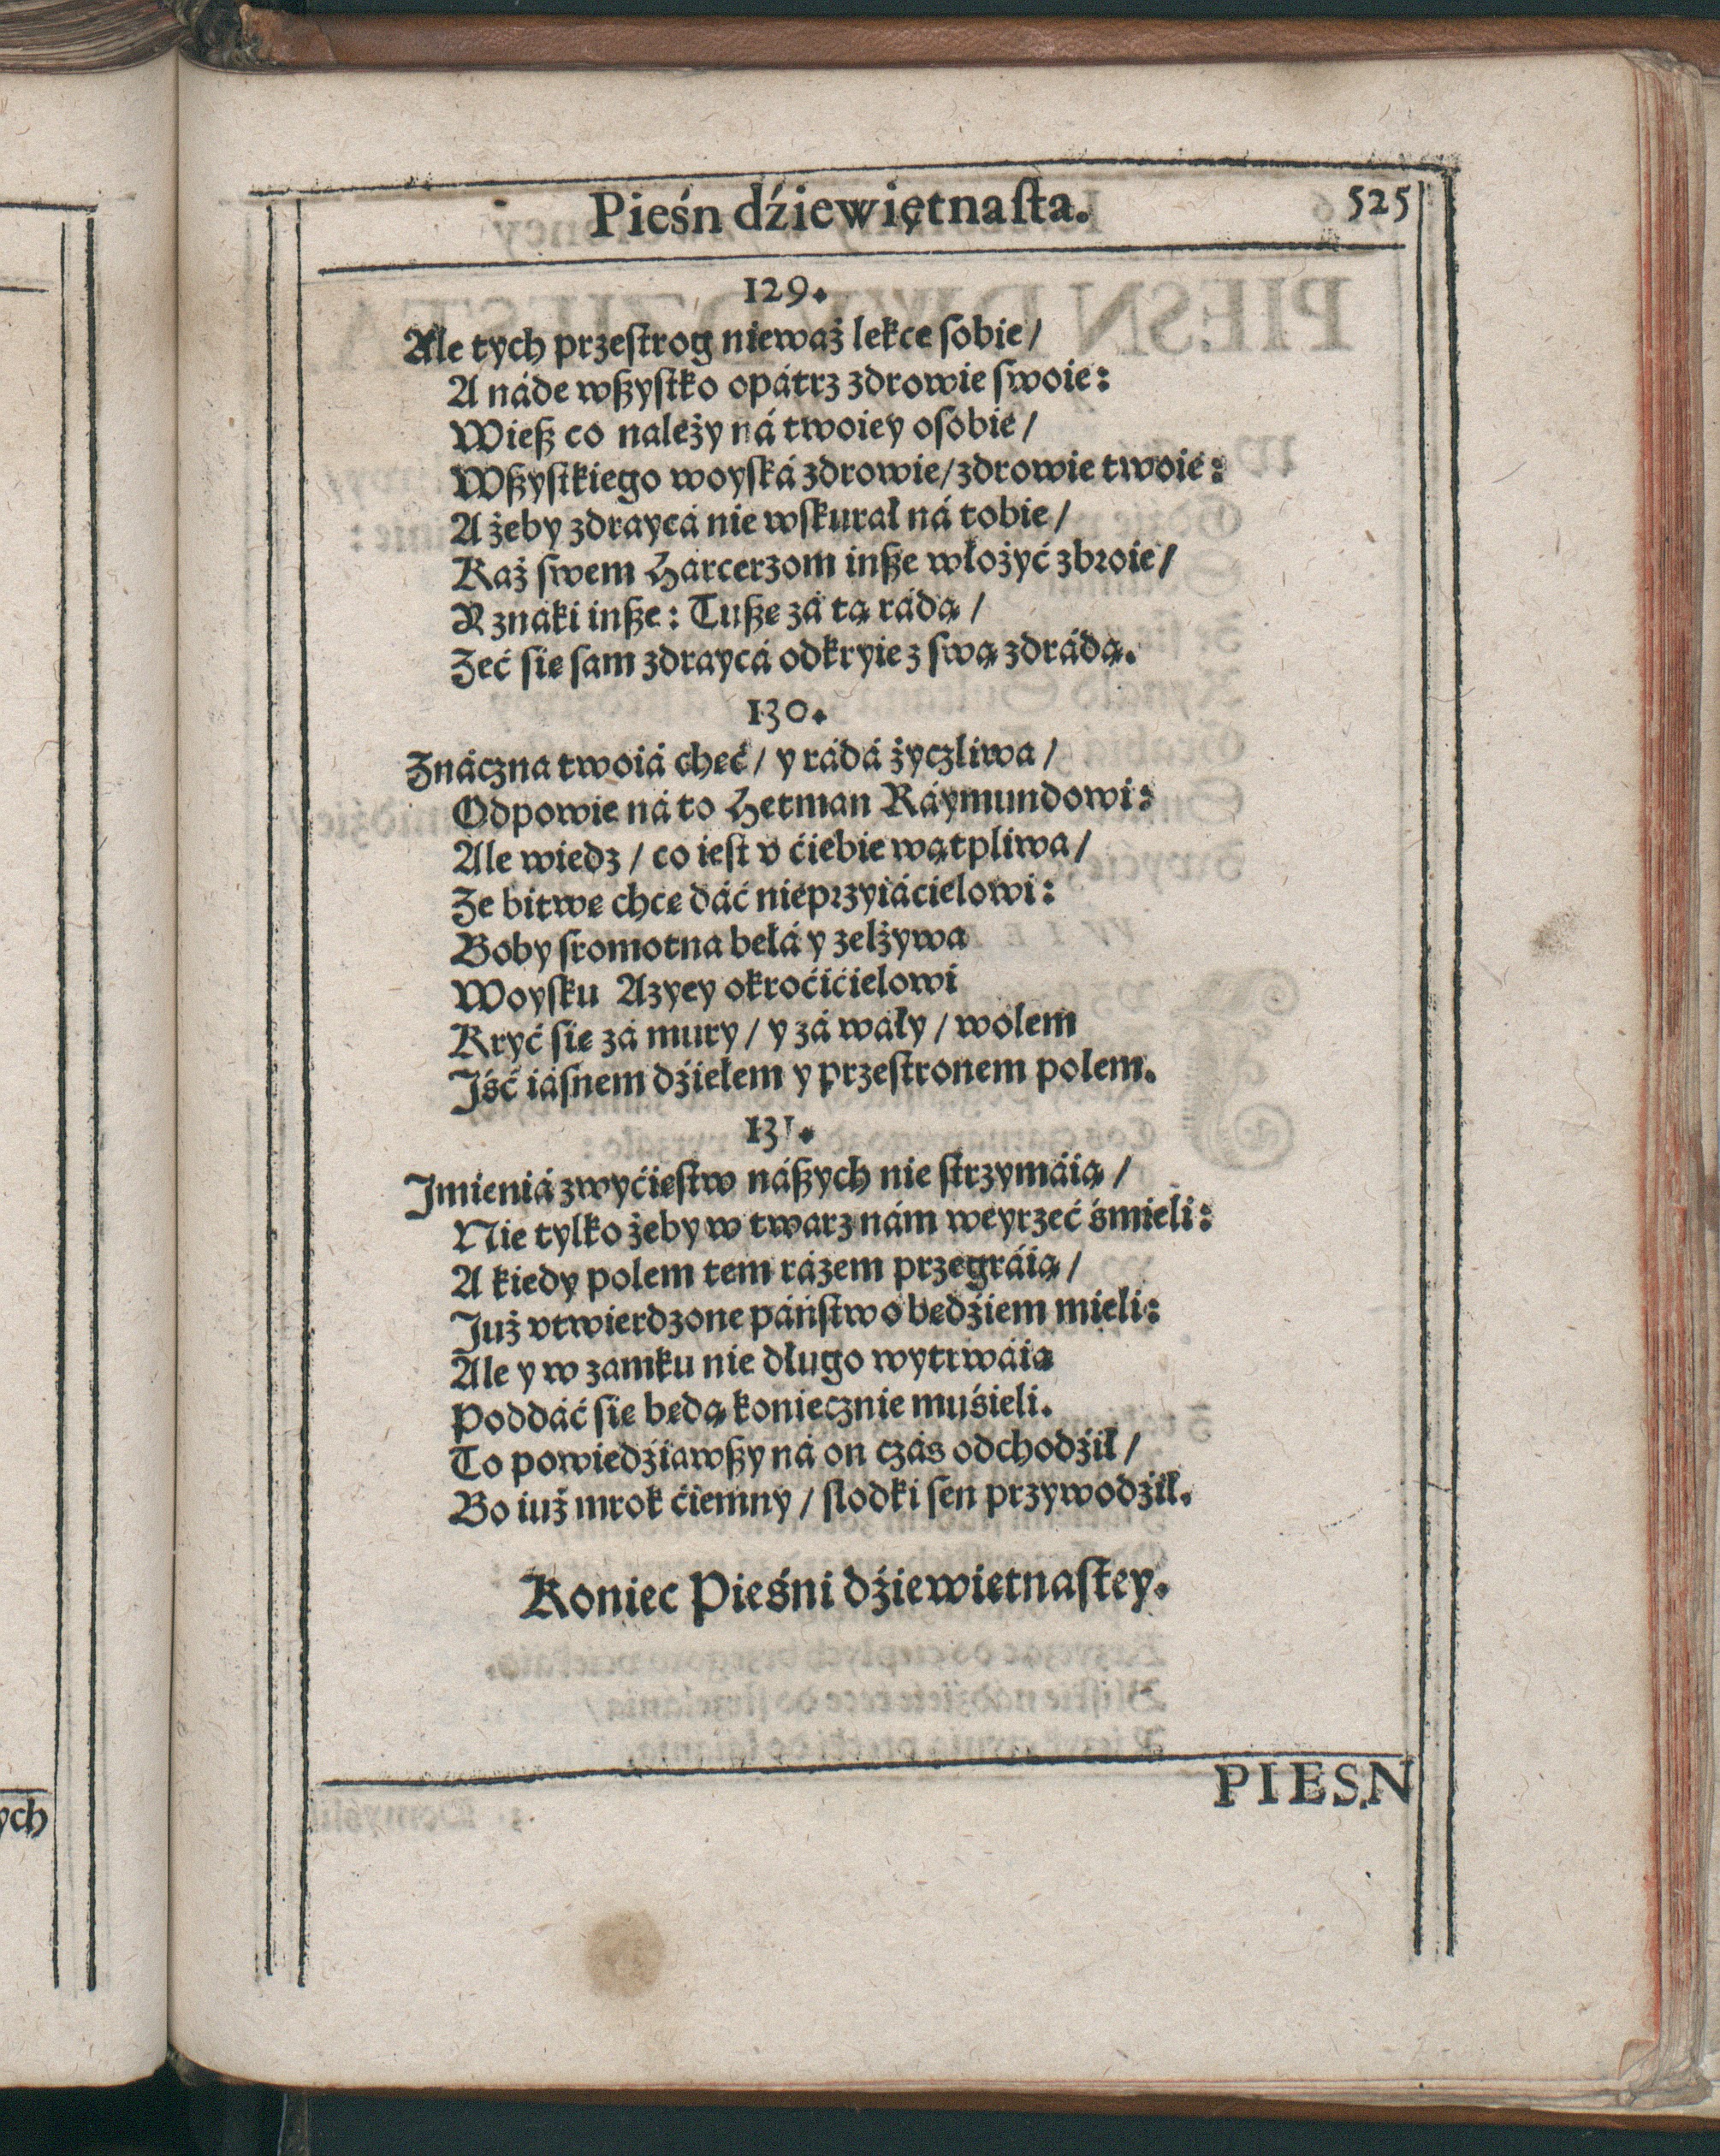 Pieśń dźiewiętnaſta. 525
129.
Ale tych przeſtrog nieważ lekce ſobie/
A náde wßyſtko opátrz zdrowie ſwoie:
Wieß co należy ná twoiey oſobie/
Wßyſtkiego woyſká zdrowie/zdrowie twoie:
A żeby zdraycá nie wſkurał ná tobie/
Każ ſwem Harcerzom inße włożyć zbroie/
Y znáki inße: Tußę zá tą rádą/
Zeć ſię ſam zdraycá odkryie z ſwą zdrádą.
130.
Znáczna twoiá chęć/ y rádá życzliwa/
Odpowie ná to Hetman Ráymundowi:
Ale wiedz/ co ieſt v ćiebie wątpliwa/
Ze bitwę chcę dáć nieprzyiácielowi:
Boby ſromotna bełá y zelżywa
Woyſku Azyey okroćićielowi
Kryć ſię zá mury/ y zá wáły/ wolem
Jść iáſnem dźiełem y przeſtronem polem.
131.
Jmieniá zwyćięſtw náßych nie ſtrzymáią/
Nie tylko żeby w twarz nám weyrzeć śmieli:
A kiedy polem tem rázem przegráią/
Już vtwierdzone páńſtwo będźiem mieli:
Ale y w zamku nie długo wytrwáią
Poddáć ſię będą koniecznie muśieli.
To powiedźiawßy ná on czás odchodźił/
Bo iuż mrok ćiemny/ ſłodki ſen przywodźił.
Koniec Pieśni dźiewiętnaſtey.
PIESN
ych